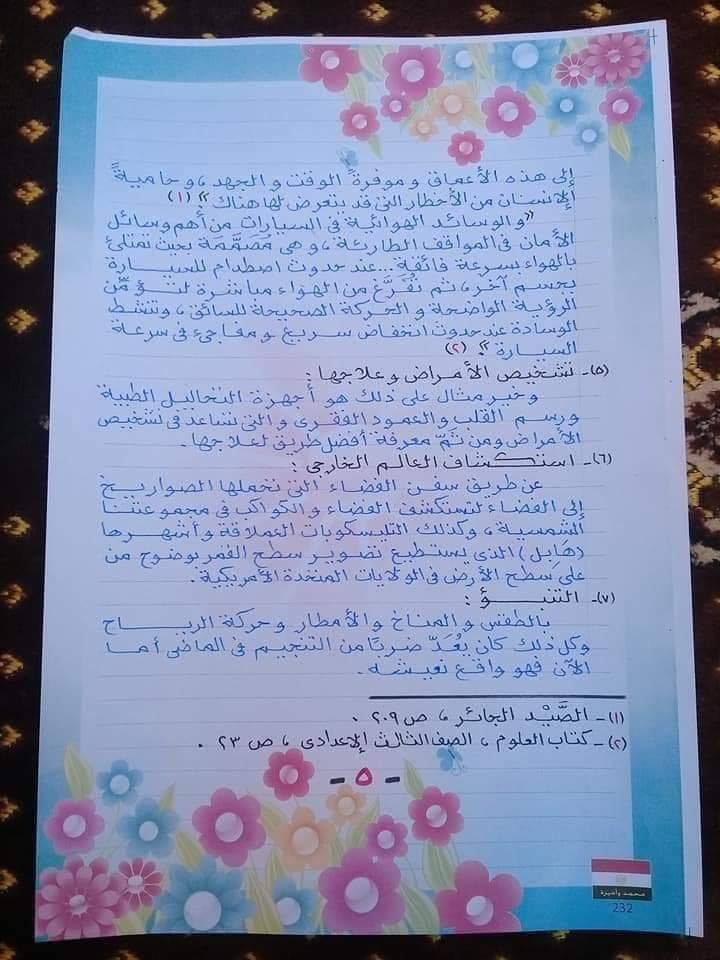 إلى هذه الأعماق و موفرةً الوقت و الجهد ، و حاميةً
الإنسان من الأخطار التى قد يتعرض لها هناك » . (١)
« و الوسائد الهوائية فى السيارات من أهم وسائل
الأمان فى المواقف الطارئة ، و هى مُصَمَّمة بحيث تمتلئ
بالهواء بسرعة فائقة ... عند حدوث اصطدام للسيارة
بجسم آخر ، ثم تُفَرَّغ من الهواء مباشرة لتؤمِّن
الرؤية الواضحة و الحركة الصحيحة للسائق ، وتنشط
الوسادة عند حدوث انخفاض سريع و مفاجىء فى سرعة
السيارة » . (٢)
(٥)- تشخيص الأمراض و علاجها :
و خير مثال على ذلك هو أجهزة التحاليل الطبية
و رسم القلب والعمود الفقرى و التى تساعد فى تشخيص
الأمراض و من ثَمَّ معرفة أفضل طريق لعلاجها .
(٦)- استكشاف العالم الخارجى :
عن طريق سفن الفضاء التى تحملها الصواريخ
إلى الفضاء لتستكشف الفضاء و الكواكب فى مجموعتنا
الشمسية ، وكذلك التليسكوبات العملاقة و أشهرها
(هابِل) الذى يستطيع تصوير سطح القمر بوضوح من
على سطح الأرض فى الولايات المتحدة الأمريكية .
(٧)- التنبؤ :
بالطقس و المناخ و الأمطار و حركة الرياح
وكل ذلك كان يُعَدّ ضربًا من التنجيم فى الماضى أما
الآن فهو واقع نعيشه .
(١)- الصَّيْد الجائر ، ص ٢٠٩ .
(٢)- كتاب العلوم ، الصف الثالث الإعدادى ، ص ٢٣ .
- ٥ -
محمد وأميرة
232